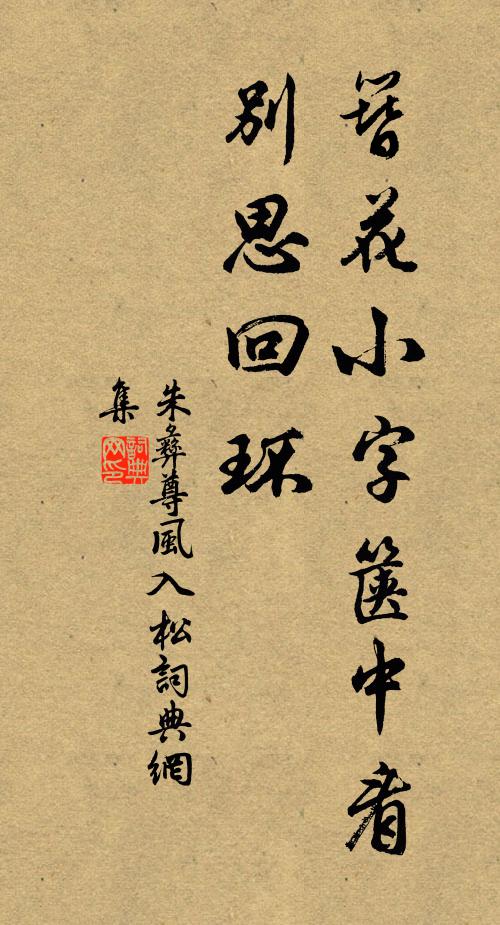 簪花小字箧中看
别思回环
朱彝尊風入松詞典網
集
詞典
网印